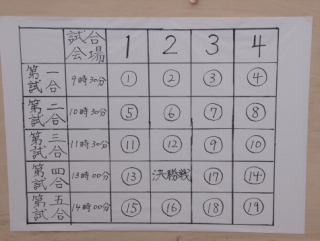 試合会場 1 2 3 4
第一試合 9時30分 ① ② ③ ④
第二試合 10時30分 ⑤ ⑥ ⑦ ⑧
第三試合 11時30分 ⑪ ⑫ ⑨ ⑩
第四試合 13時00分 ⑬ 決勝戦 ⑰ ⑭
第五試合 14時00分 ⑮ ⑯ ⑱ ⑲